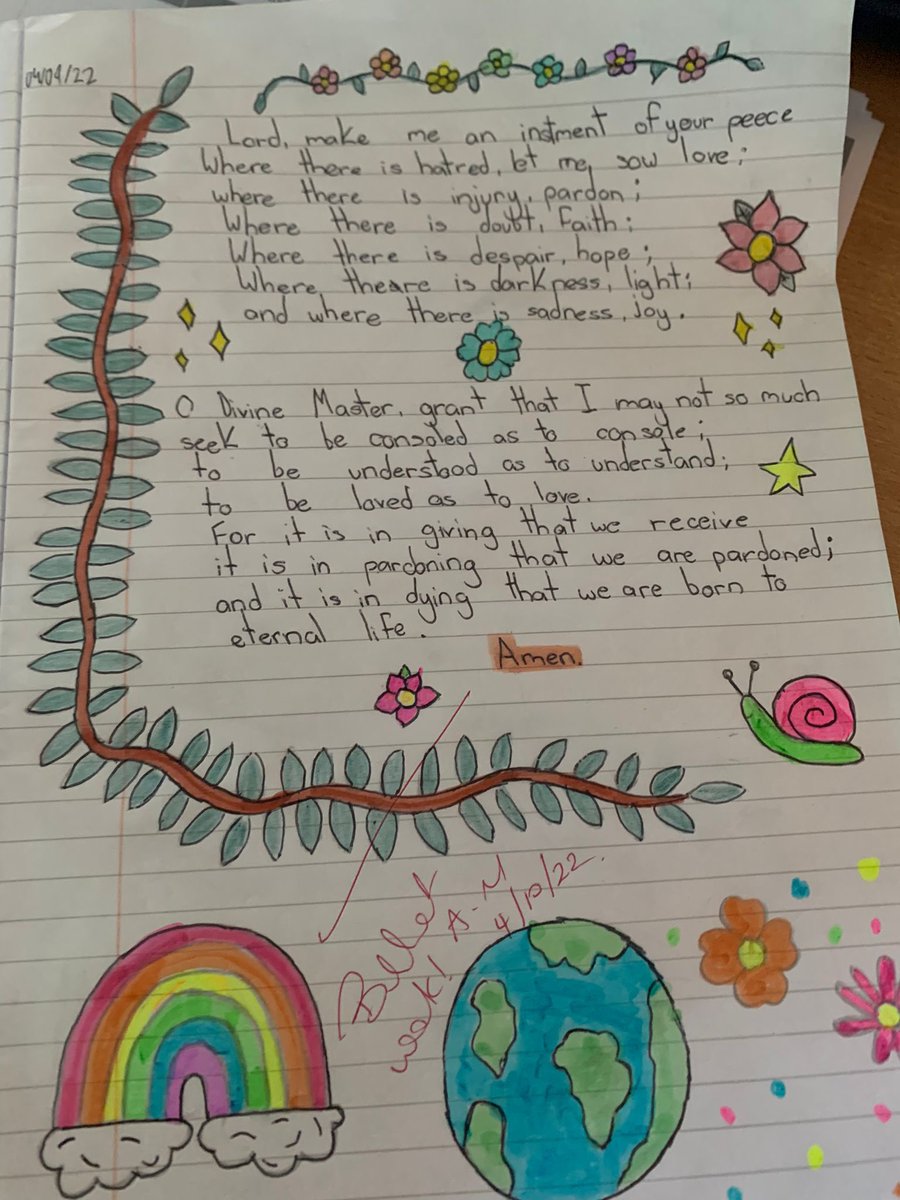 04/04/22
Lord, make me an instment of your peece
Where there is hatred, let me sow love;
where there is injury, pardon;
Where there is doubt, Faith;
Where there is despair, hope;
Where theare is darkness, light;
and where there is sadness, joy.
O Divine Master, grant that I may not so much
seek to be consoled as to console;
to be understood as to understand;
to be loved as to love.
For it is in giving that we receive
it is in pardoning that we are pardoned;
and it is in dying that we are born to
eternal life.
Amen.
week!
A-M
4/10/22.